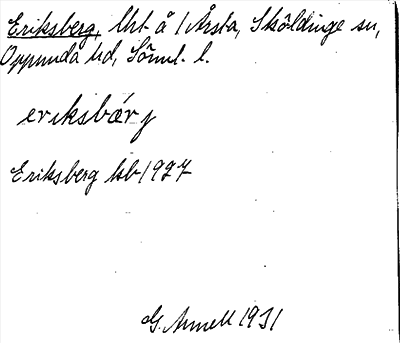 Eriksberg, lht å 1 Årsta, Sköldinge sn,
Oppunda hd, Söml. l.
eriksbärj
Eriksberg ksb 1927
G. Arnell 1931